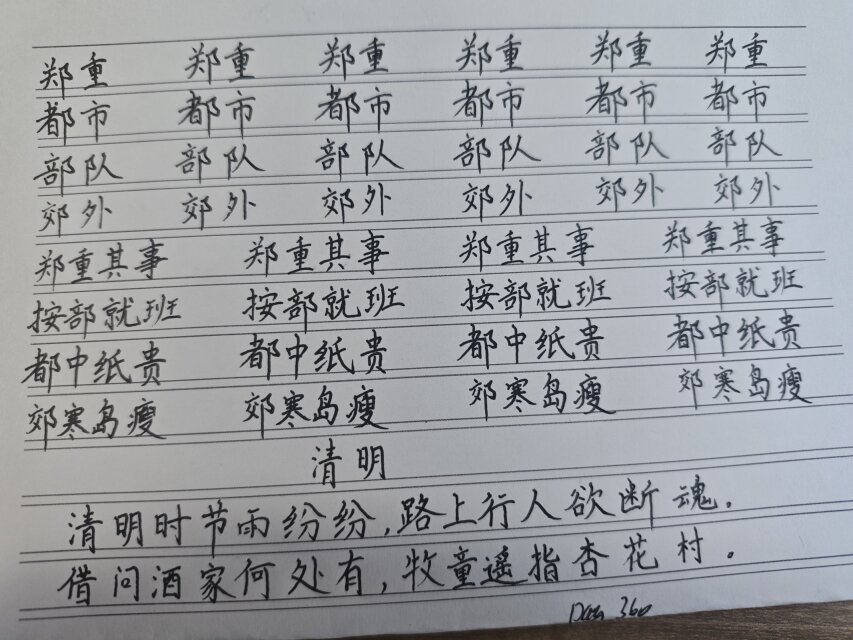 郑重 郑重 郑重 郑重 郑重 郑重
都市 都市 都市 都市 都市 都市
部队 部队 部队 部队 部队 部队
郊外 郊外 郊外 郊外 郊外 郊外
郑重其事 郑重其事 郑重其事 郑重其事
按部就班 按部就班 按部就班 按部就班
都中纸贵 都中纸贵 都中纸贵 都中纸贵
郊寒岛瘦 郊寒岛瘦 郊寒岛瘦 郊寒岛瘦
清明
清明时节雨纷纷,路上行人欲断魂.
借问酒家何处有,牧童遥指杏花村.
Day 360